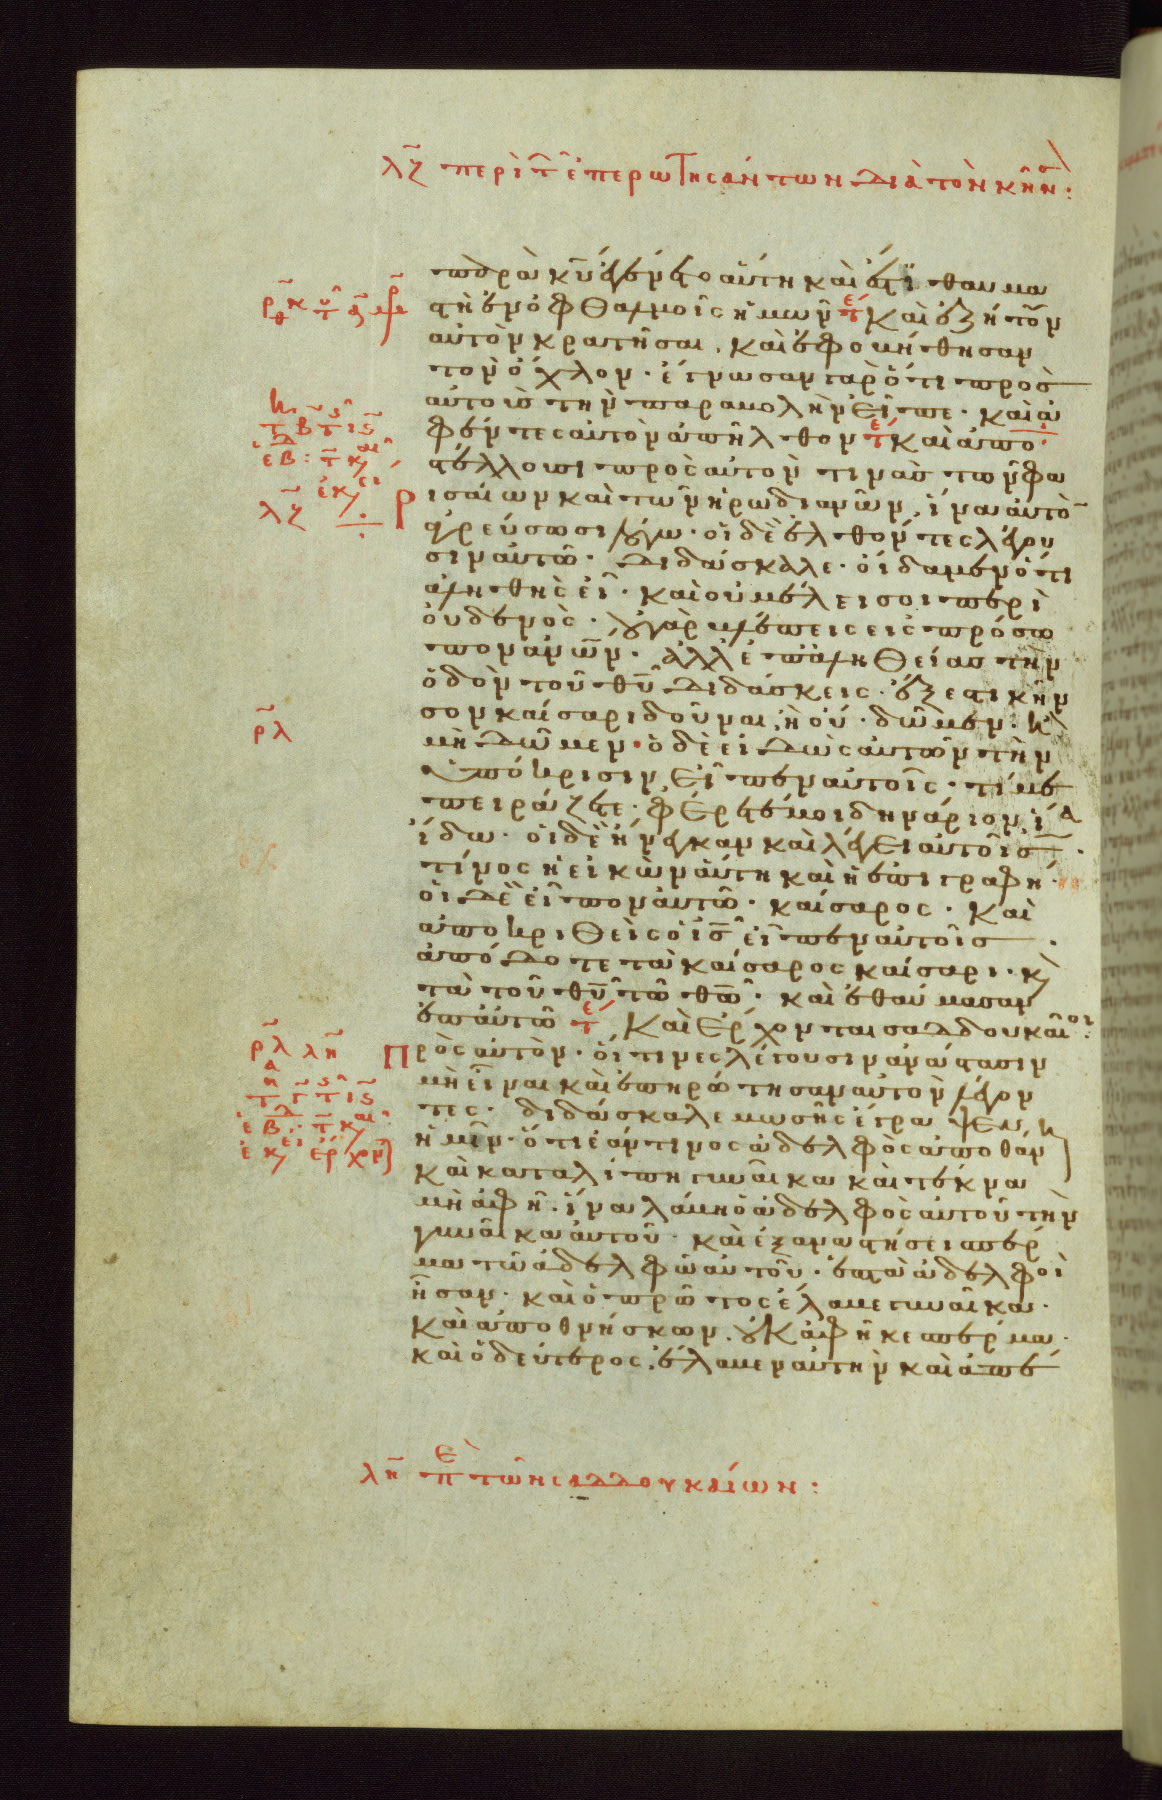 λζ περὶ τ ἐπερωτησάντων διὰ τὸν κῆνσ:
παρὰ κ̅υ̅ ἐγένετο αὕτη καὶ ἔστι θαυμα
στὴ ἐν ὀφθαλμοῖς ἡμῶν τε Καὶ ἐζήτουν
αὐτὸν κρατῆσαι, καὶ ἐφοβήθησαν
τὸν ὄχλον· ἔγνωσαν γὰρ ὅτι πρὸσ
αὐτοὺσ τὴν παραβολὴν εἶπε· καὶ ἀ
φέντες αὐτὸν ἀπῆλθον τε Καὶ ἀπο
στέλλουσι πρὸς αὐτὸν τινὰσ τῶν φα
ρισαίων καὶ τῶν ἡρωδιανῶν, ἵνα αὐτὸ̅
ἀγρεύσωσι λόγω· οἱ δὲ ἐλθόντες λέγου
σιν αὐτῶ· Διδάσκαλε· οἴδαμεν ὅτι
ἀληθὴς εἶ· καὶ οὐ μέλει σοι περὶ
οὐδενὸς· οὐ γὰρ βλέπεις εἰς πρόσω
πον ἀν̅ω̅ν· ἀλλ' ἐπ' ἀληθείασ τὴν
ὁδὸν τοῦ θ̅υ̅ διδάσκεις· ἔξεστι κῆν
σον καίσαρι δοῦναι, ἢ οὔ· δῶμεν· ἢ
μὴ δῶμεν· ὁ δὲ εἰδὼς αὐτῶν τὴν
ὑπόκρισιν εἶπεν αὐτοῖς· τί με
πειράζετε· φέρετέ μοι δηνάριον ἵνα
ἴδω· οἱ δὲ ἤνεγκαν καὶ λέγει αὐτοῖσ·
τίνος ἡ εἰκὼν αὕτη καὶ ἡ ἐπιγραφή·
οἱ δὲ εἶπον αὐτῶ· καίσαρος· Καὶ
ἀποκριθεὶς ὁ ι̅σ̅ εἶπεν αὐτοῖσ·
ἀπόδοτε τὰ καίσαρος καίσαρι· κ
τὰ τοῦ θ̅υ̅ τῶ θ̅ω̅· καὶ ἐθαύμασαν
ἐπ' αὐτῶ τε Καὶ ἔρχονται σαδδουκαῖοι
πρὸς αὐτὸν· οἵτινες λέγουσιν ἀνάστασιν
μὴ εἶναι καὶ ἐπηρώτησαν αὐτὸν λέγον
τες· διδάσκαλε μωσῆς ἔγραψεν
ἡμῖν· ὅτι ἐάν τινος ἀδελφὸς ἀποθάν
καὶ καταλίπη γυναῖκα καὶ τέκνα
μὴ ἀφῆ· ἵνα λάβη ὁ ἀδελφὸς αὐτοῦ τὴν
γυναῖκα αὐτοῦ· καὶ ἐξαναστήσει σπέρ
μα τῶ ἀδελφῶ αὐτοῦ· ἑπτὰ ἀδελφοὶ
ἦσαν· καὶ ὁ πρῶτος ἔλαβε γυναῖκα·
καὶ ἀποθνήσκων, οὐκ ἀφῆκε σπέρμα·
καὶ ὁ δεύτερος, ἔλαβεν αὐτὴν καὶ ἀπέ
ρ̅λ
ρ̅λ λη
λη π ε τῶν σαδδουκαίων: